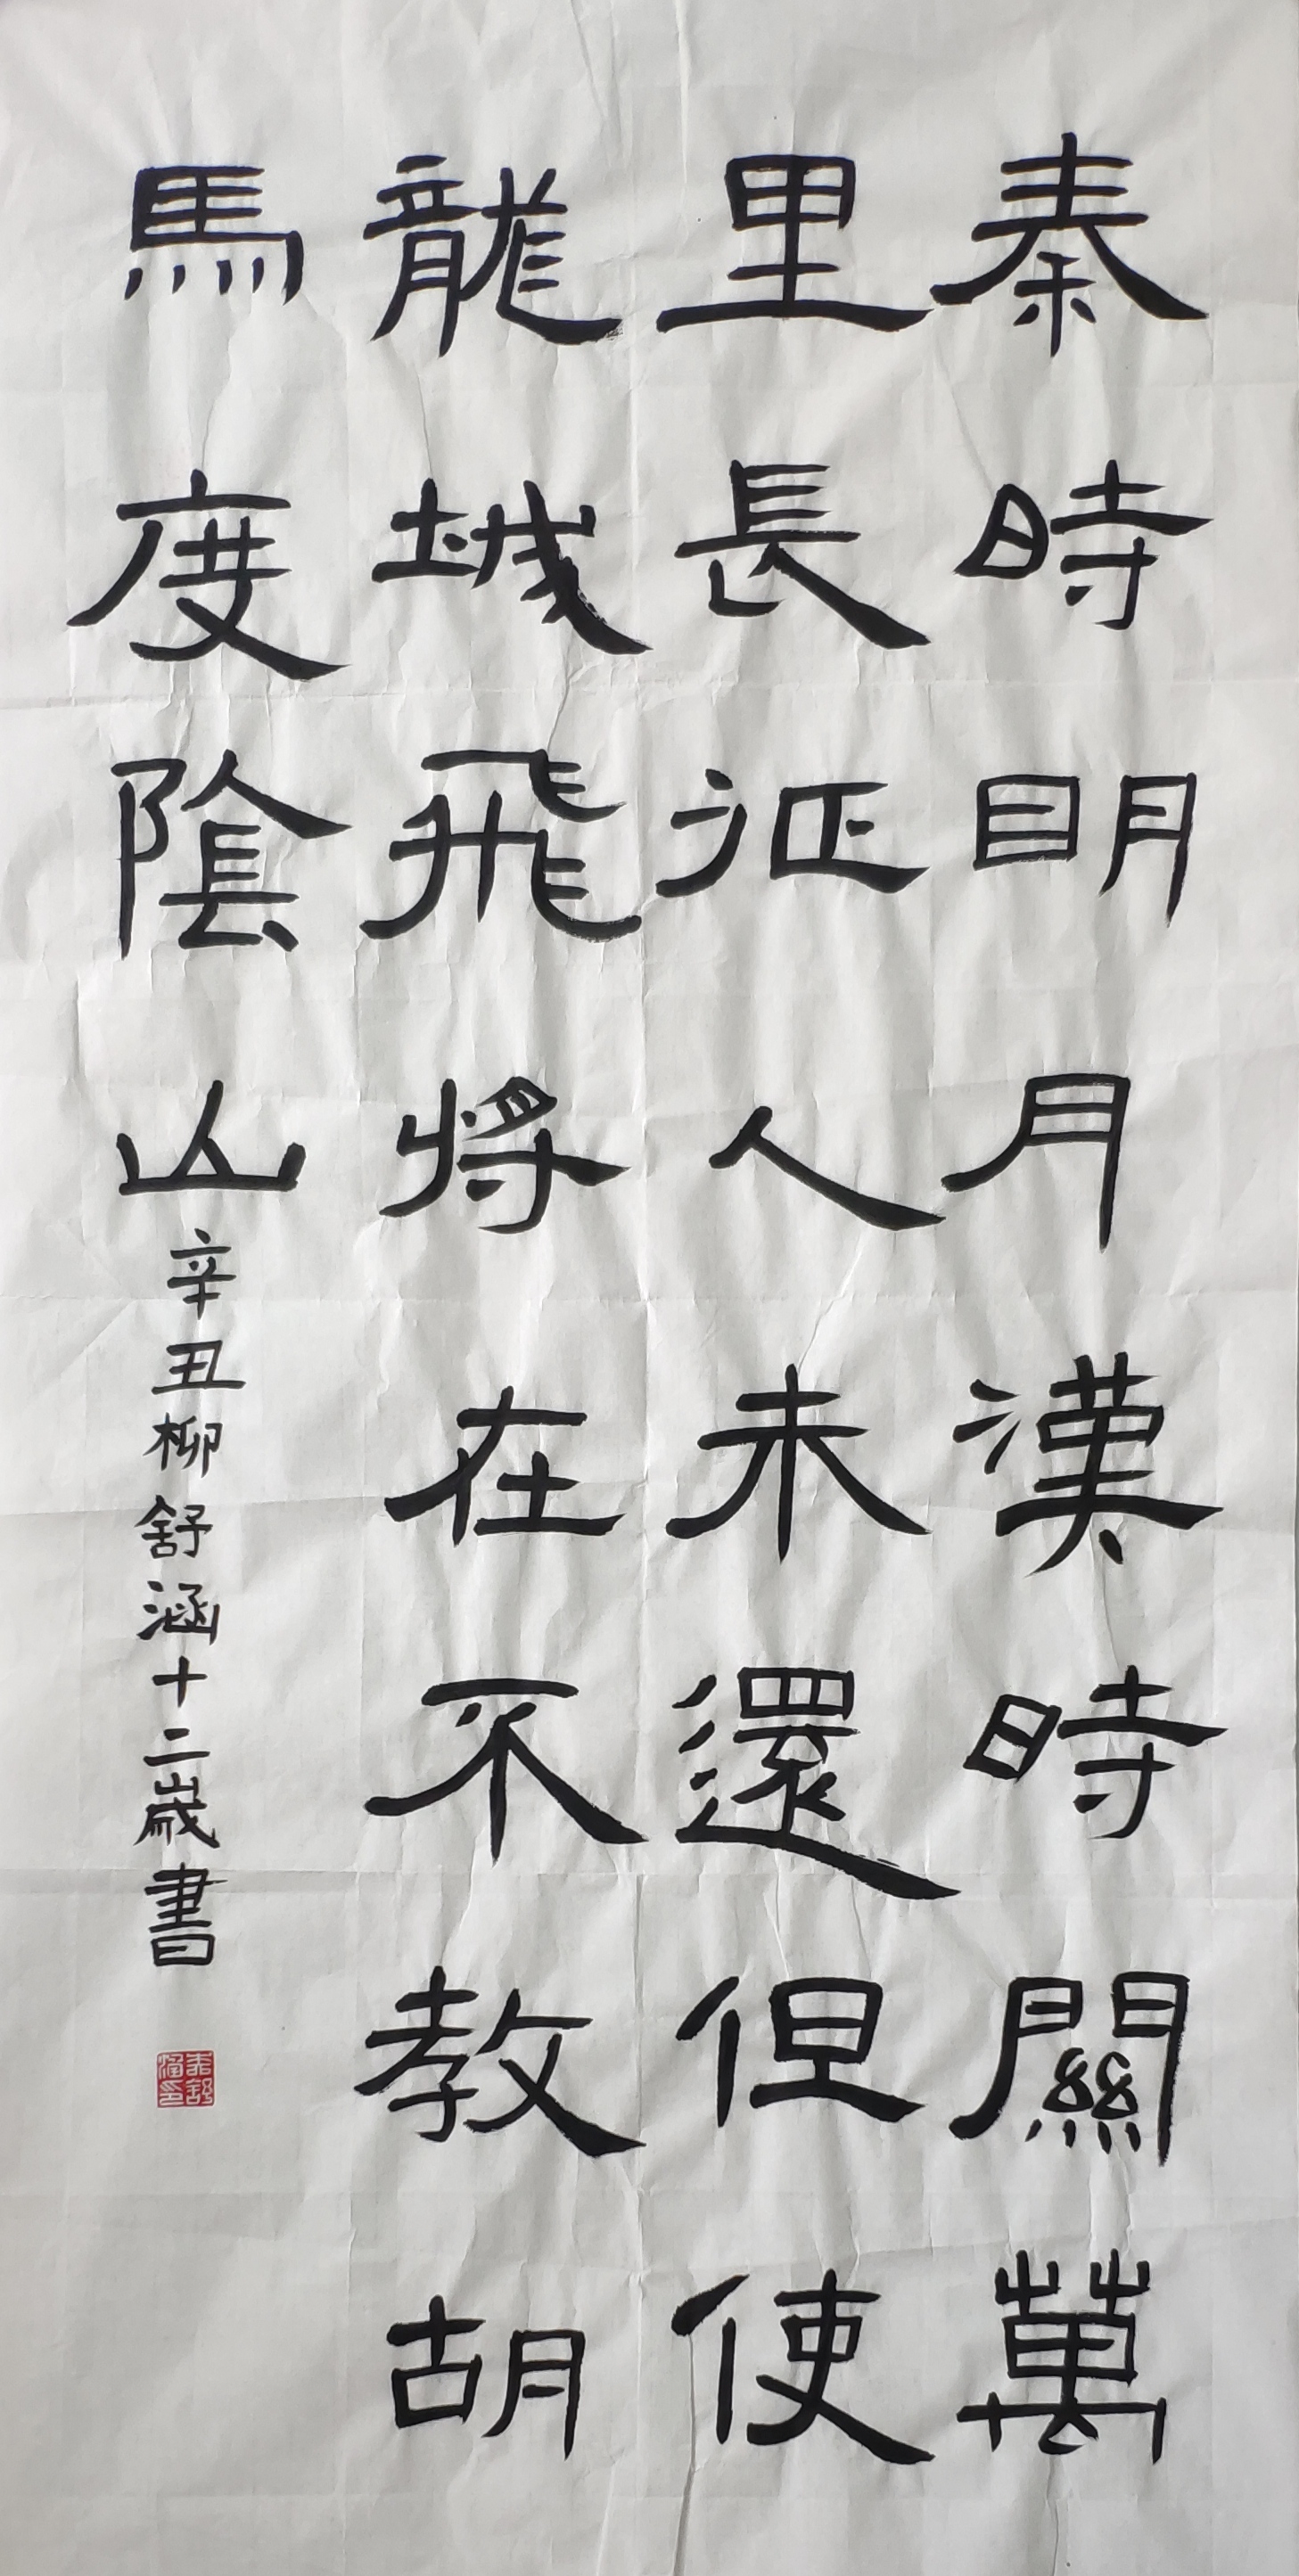 秦時明月漢時關萬
里長征人未還但使
龍城飛将在不教胡
馬度陰山
辛丑柳舒涵十二歲書